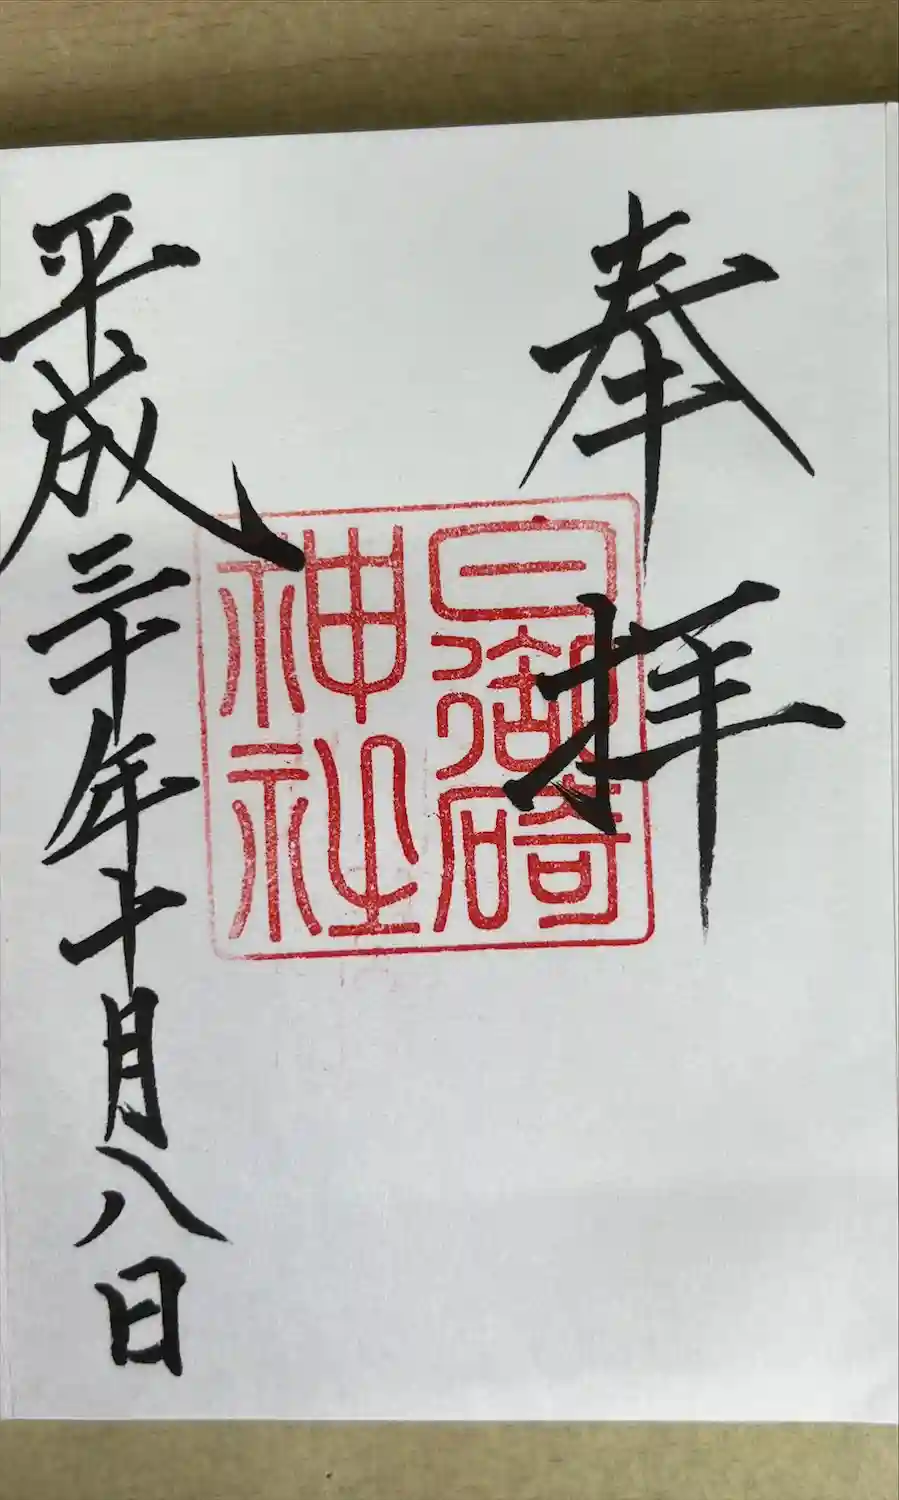 奉拝
日御碕
神社
平成三十年十月八日